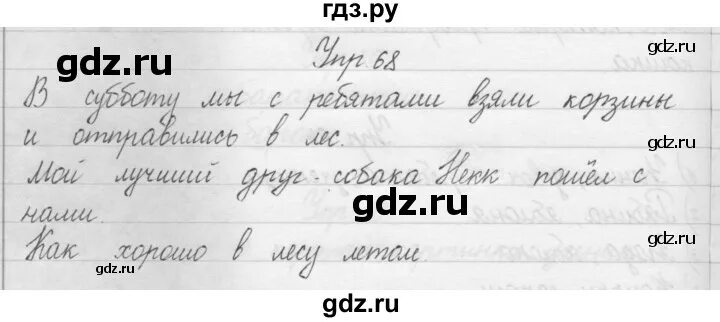 гдз.ру
Упр. 68
gdz.ru
gdz.ru
В субботу мы с ребятами взяли корзины
и отправились в лес.
gdz.ru
Мой лучший друг - собака Некк пошёл с
gdz.ru
нами.
gdz.ru
Как хорошо в лесу летом.
gdz.ru
gdz.ru
gdz.ru